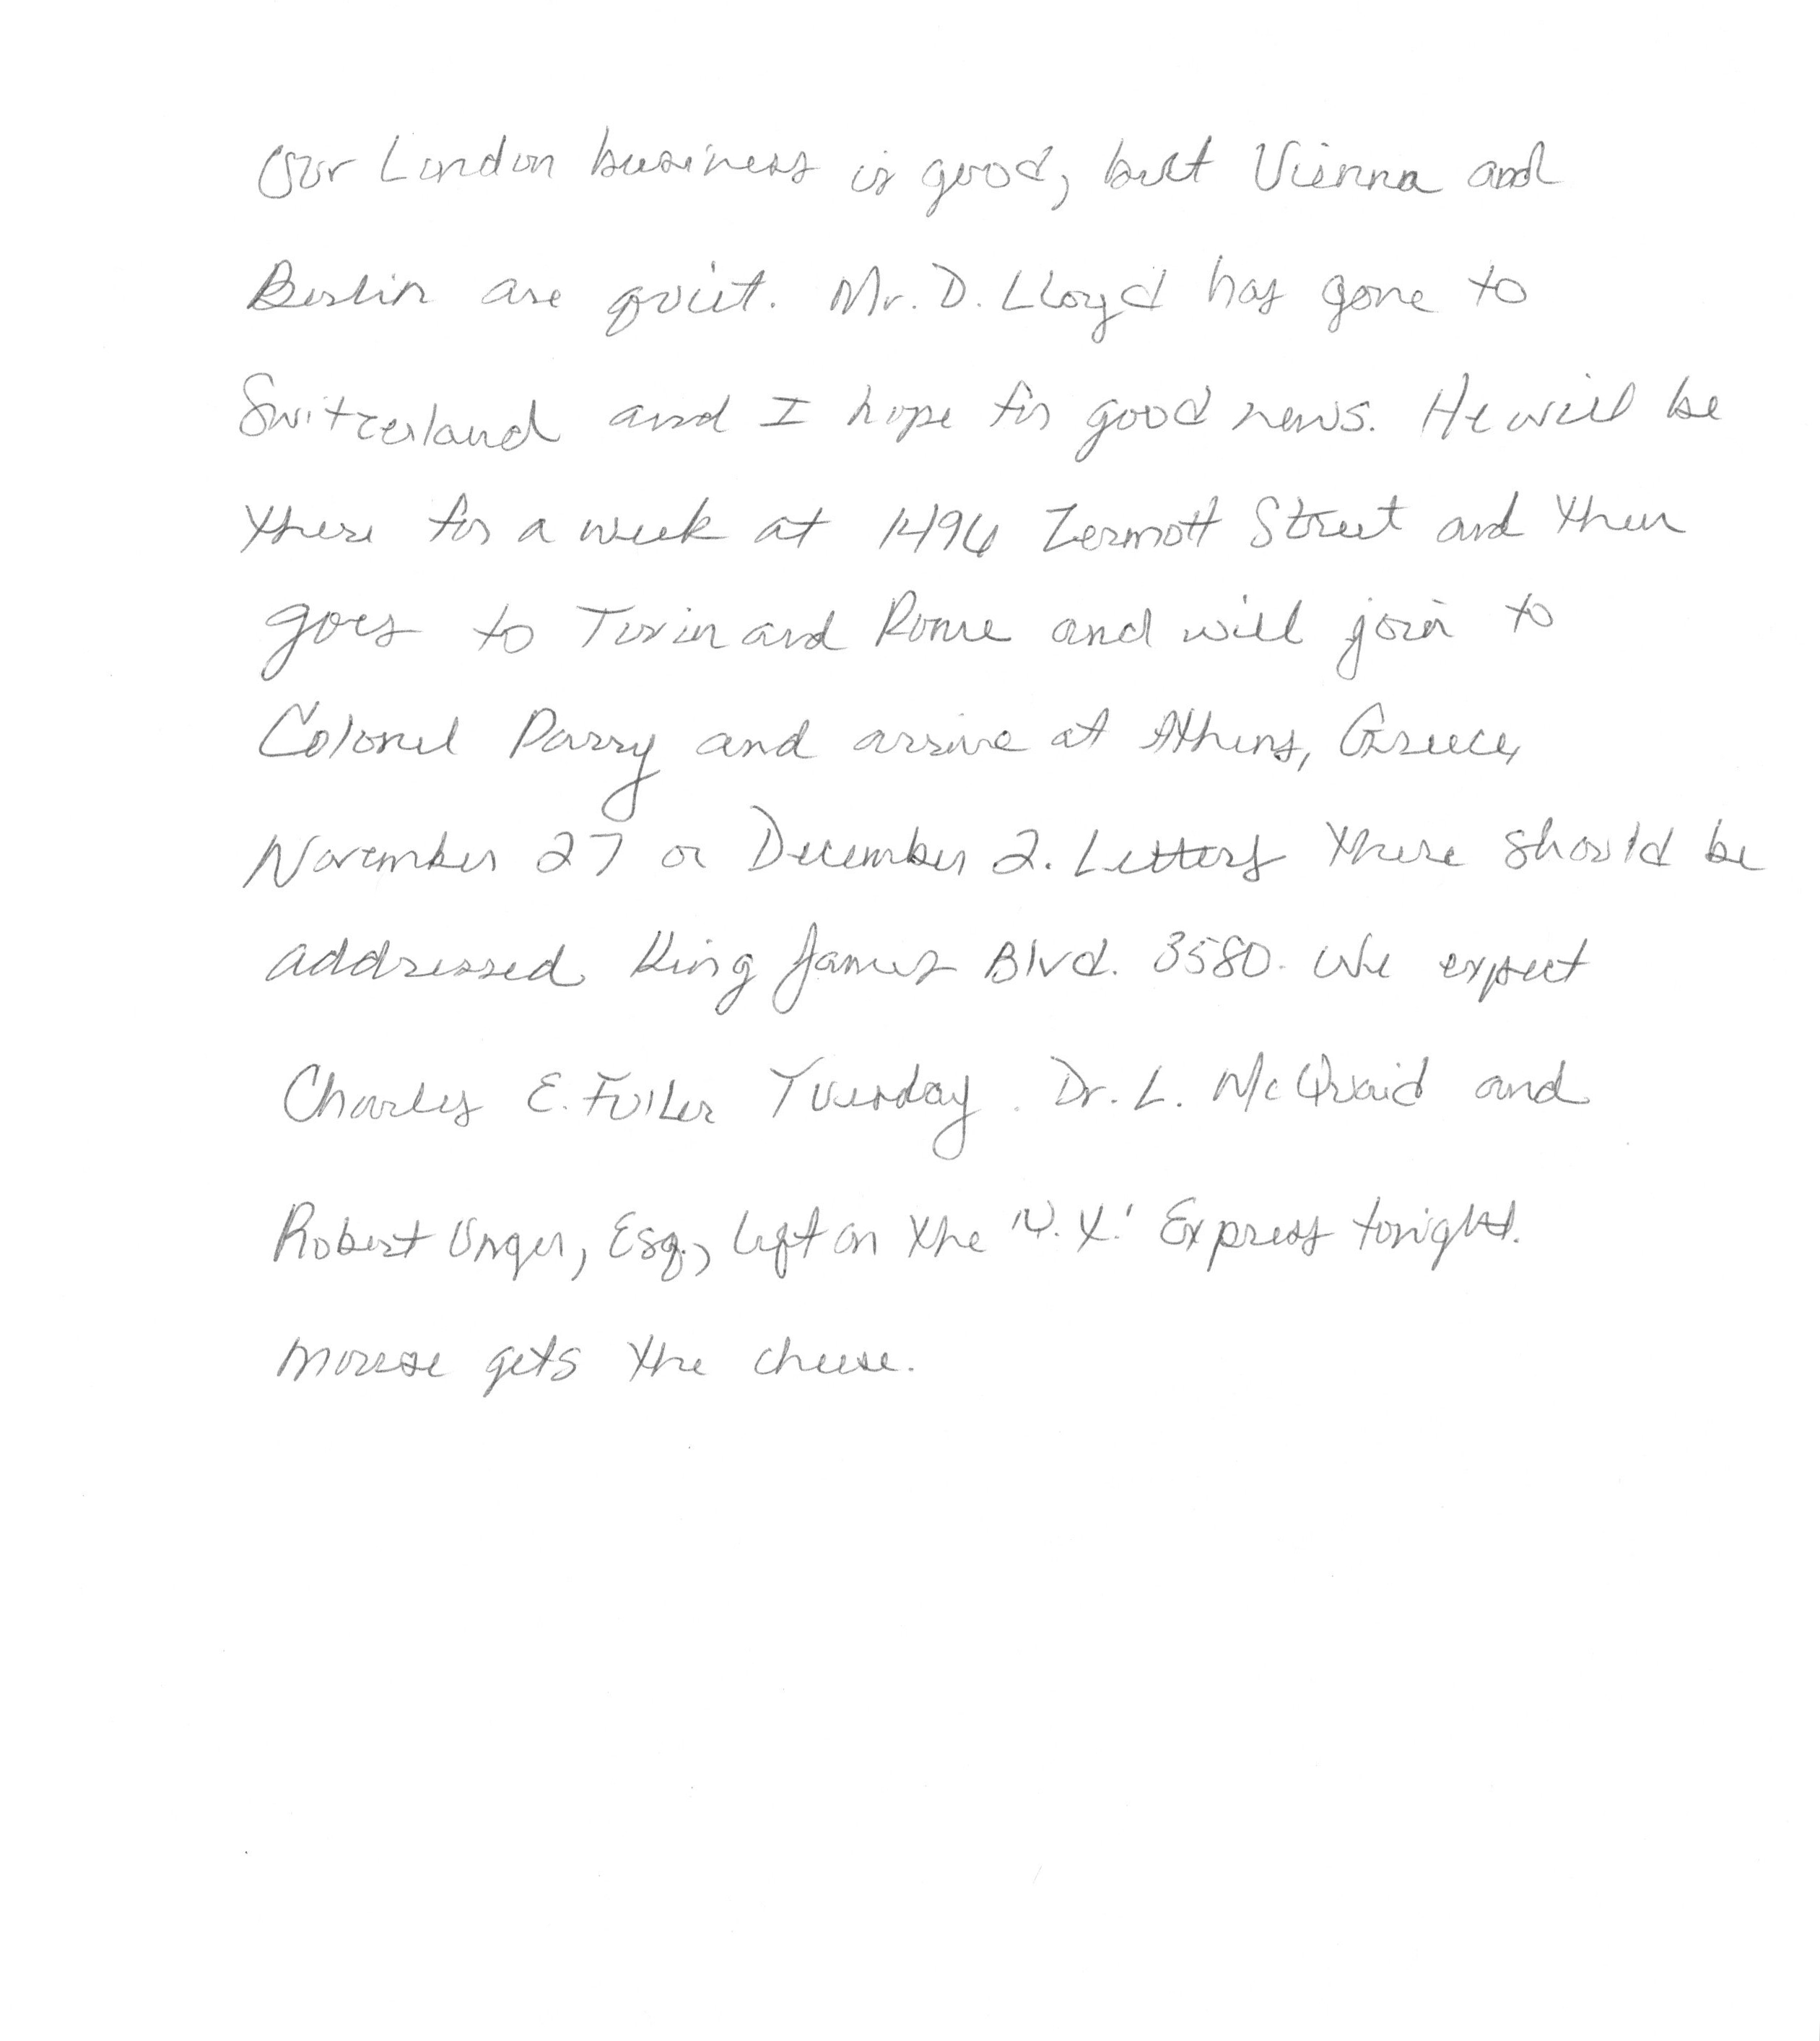 Our London business is good, but Vienna and
Berlin are quiet. Mr. D. Lloyd has gone to
Switzerland and I hope for good news. He will be
there for a week at 1496 Zermott Street and then
goes to Turin and Rome and will join to
Colonel Parry and arrive at Athens, Greece,
November 27 or December 2. Letters there should be
addressed King James Blvd. 3580. We expect
Charles E. Fuller Tuesday. Dr. L. McQuaid and
Robert Unger, Esq., left on the 'N.Y.' Express tonight.
mouse gets the cheese.